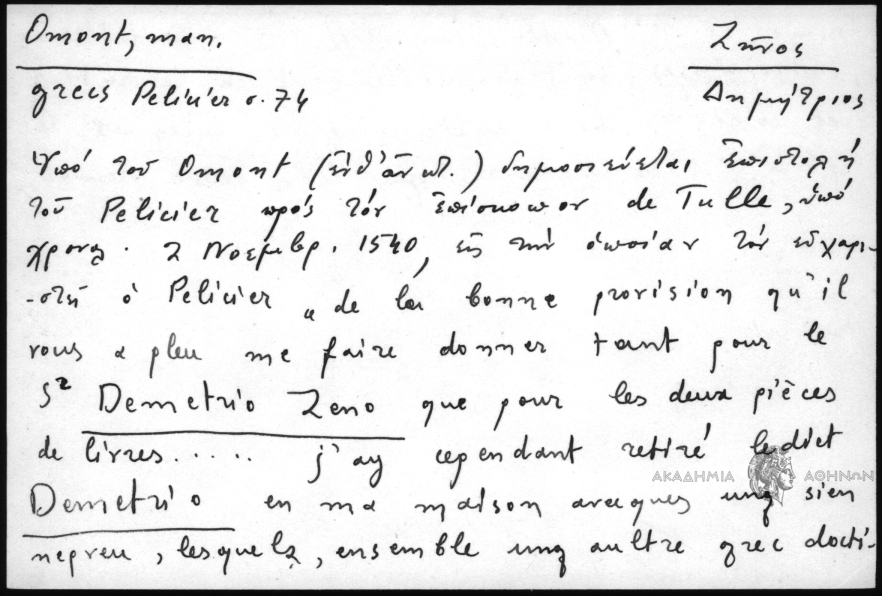 Omont, man.
Ζῆνος
grecs Pelicier σ. 74
Δημήτριος
Ὑπό τοῦ Omont (ἔνθ' ἀνωτ.) δημοσιεύεται ἐπιστολή
τοῦ Pelicier πρός τόν ἐπίσκοπον de Tulle, ὑπό
χρονολ. 2 Νοεμβρ. 1540, εἰς τήν ὁποίαν τόν εὐχαρι-
-στεῖ ὁ Pelicier "de la bonne provision qu'il
vous a pleu me faire donner tant pour le
Sr Demetrio Zeno que pour les deux pièces
de livres..... j'ay cependant retiré ledict
ΑΚΑΔΗΜΙΑ ΑΘΗΝΩΝ
Demetrio en ma maison avecques ung sien
nepveu, lesquelz, ensemble ung aultre grec docti-